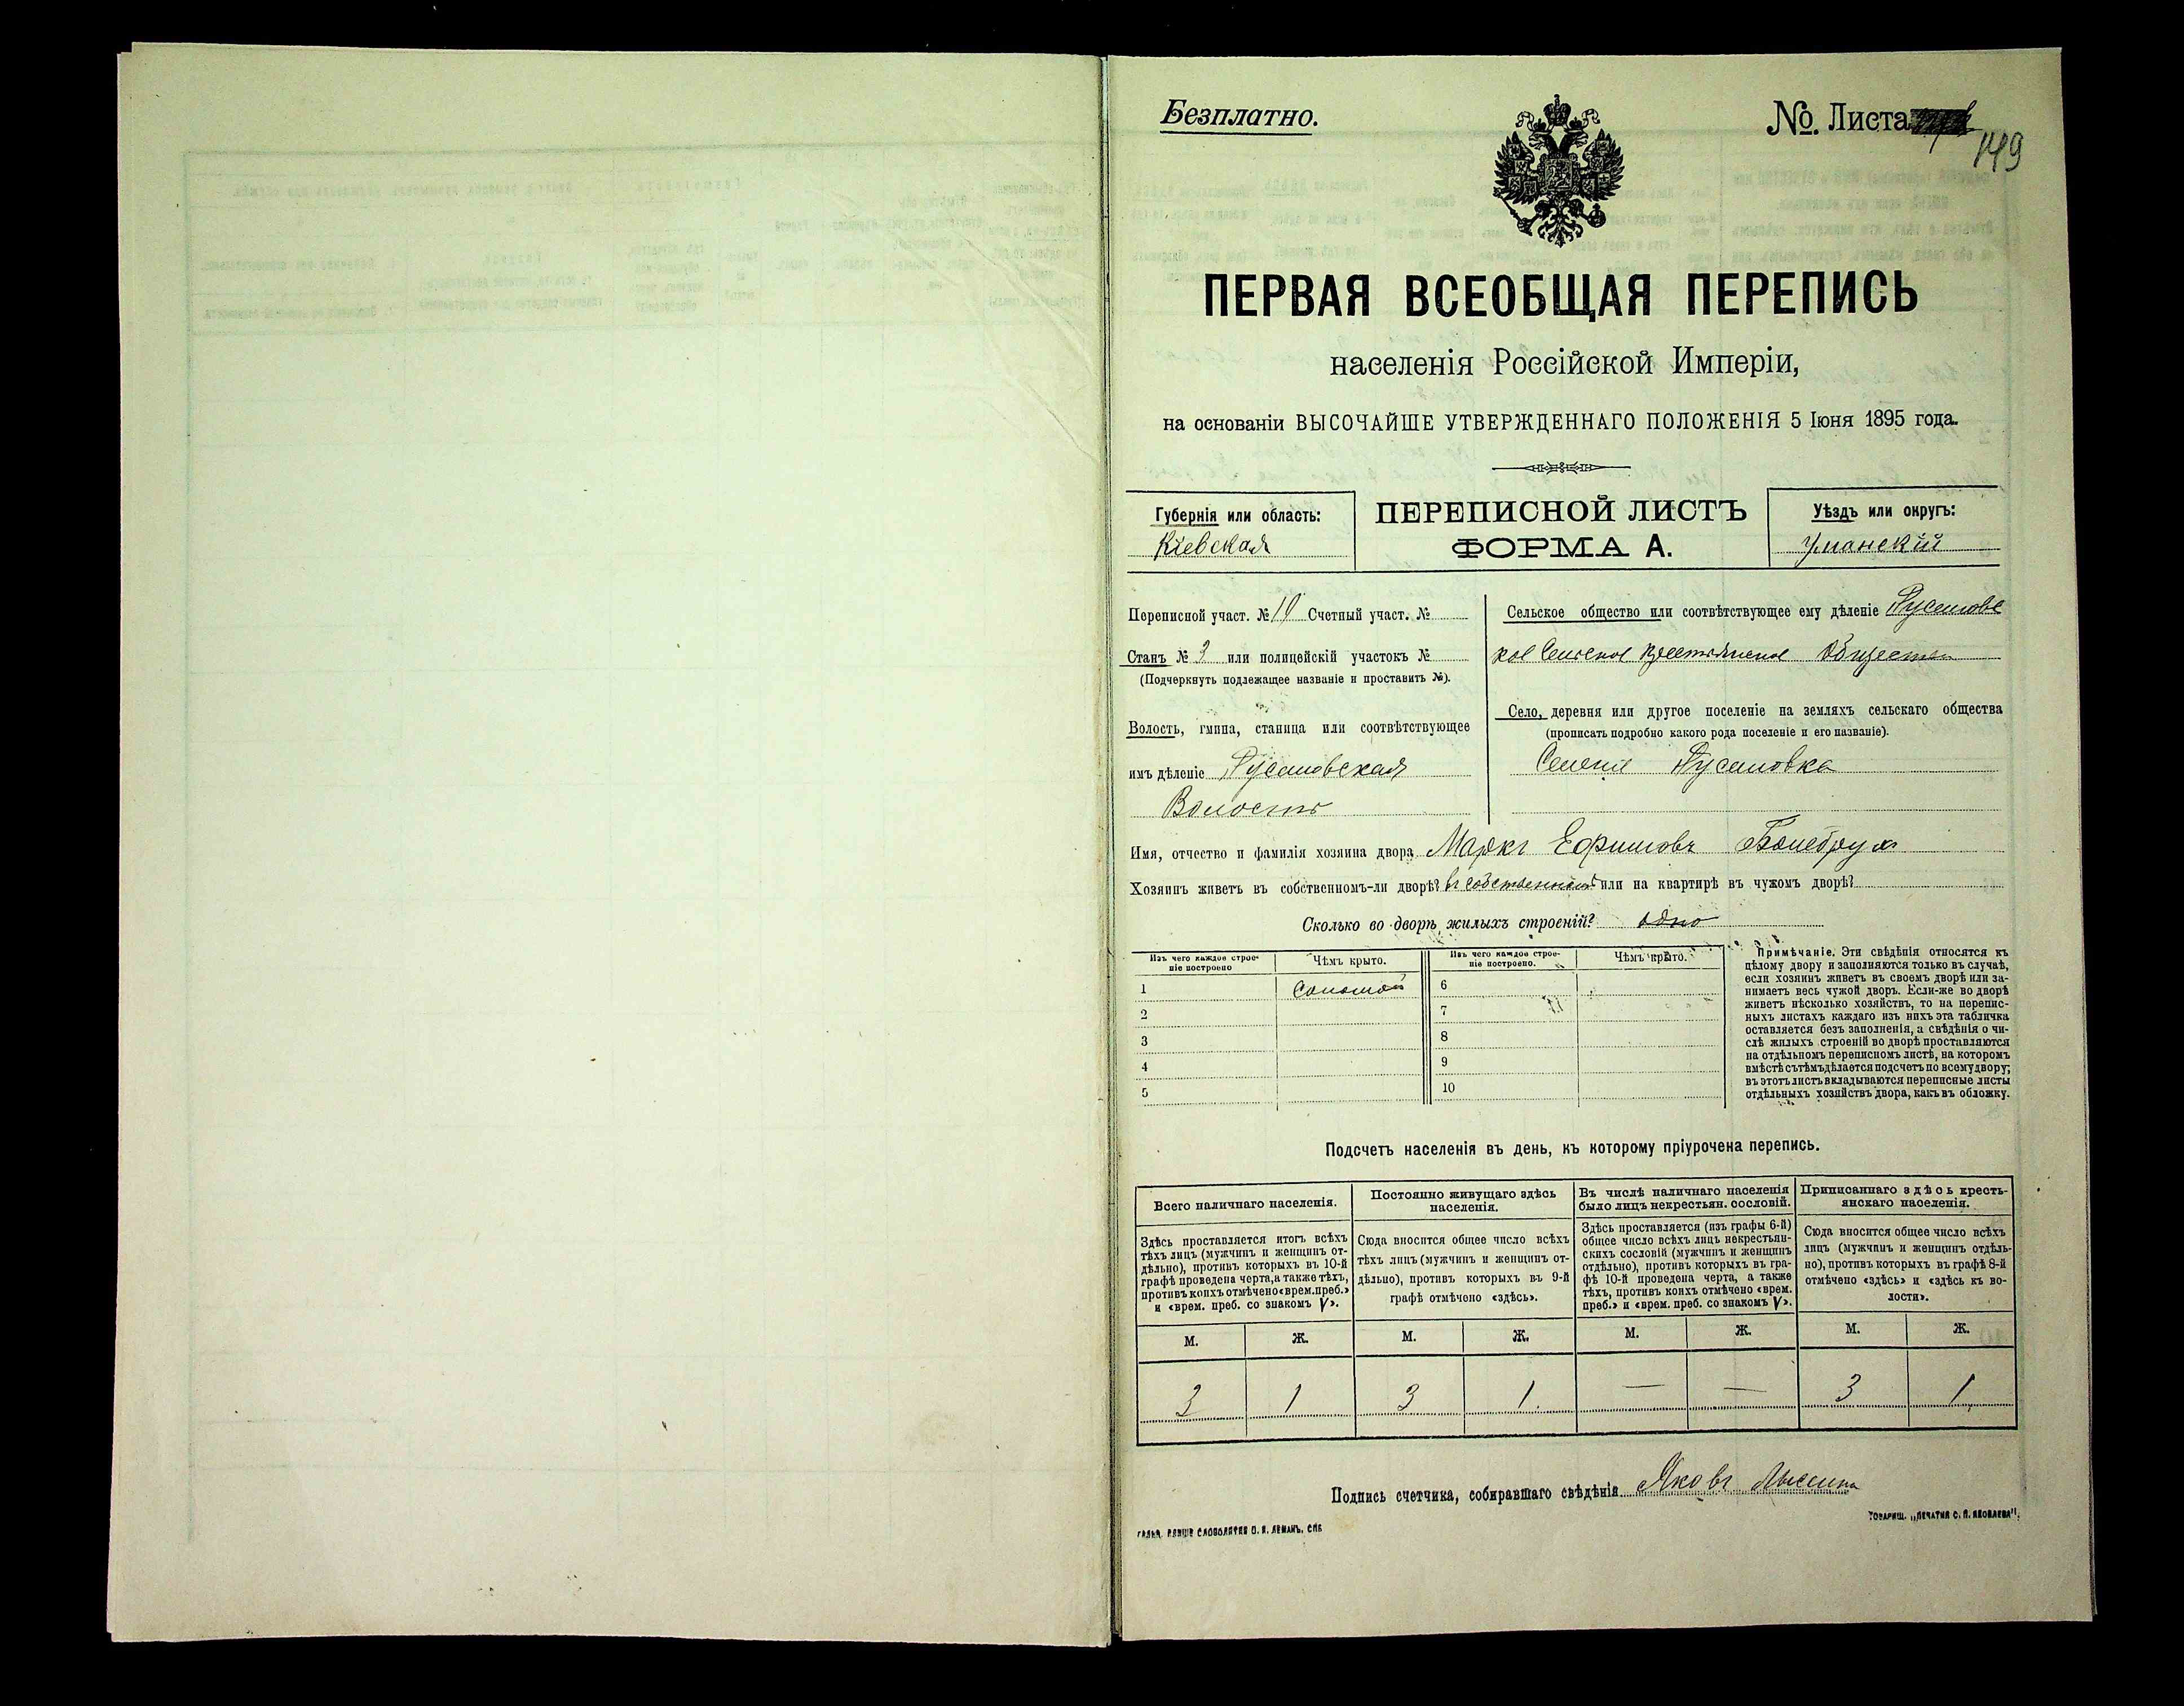 Безплатно.
№ Листа
149
ПЕРВАЯ ВСЕОБЩАЯ ПЕРЕПИСЬ
населенія Россійской Имперіи,
на основаніи ВЫСОЧАЙШЕ УТВЕРЖДЕННАГО ПОЛОЖЕНІЯ 5 Іюня 1895 года.
Губернія или область:
Кіевская
ПЕРЕПИСНОЙ ЛИСТЪ
ФОРМА А.
Уѣздъ или округъ:
Уманскій
Переписной участ. № Счетный участ. №
Станъ № 3 или полицейскій участокъ №
(Подчеркнуть подлежащее названіе и проставить №).
Волость, гмина, станица или соотвѣтствующее
имъ дѣленіе Русаловская
Волость
Сельское общество или соотвѣтствующее ему дѣленіе Русаловс
кое Сельское Крестьянское Общество
Село, деревня или другое поселеніе на земляхъ сельскаго общества
(прописать подробно какого рода поселеніе и его названіе).
Селеніе Русаловка
Имя, отчество и фамилія хозяина двора Марко Ефимовъ
Хозяинъ живетъ въ собственномъ-ли дворѣ? въ собственномъ или на квартирѣ въ чужомъ дворѣ?
Сколько во дворѣ жилыхъ строеній? одно
Изъ чего каждое строе-
ніе построено
Чѣмъ крыто.
Изъ чего каждое строе-
ніе построено.
Чѣмъ крыто.
1 Соломой 6
2 7
3 8
4 9
5 10
Примѣчаніе. Эти свѣдѣнія относятся къ
цѣлому двору и заполняются только въ случаѣ,
если хозяинъ живетъ въ своемъ дворѣ или за-
нимаетъ весь чужой дворъ. Если-же во дворѣ
живетъ нѣсколько хозяйствъ, то на перепис-
ныхъ листахъ каждаго изъ нихъ эта табличка
оставляется безъ заполненія, а свѣдѣнія о чи-
слѣ жилыхъ строеній во дворѣ проставляются
на отдѣльномъ переписномъ листѣ, на которомъ
вмѣстѣ съ тѣмъ дѣлается подсчетъ по всему двору;
въ этотъ листъ вкладываются переписные листы
отдѣльныхъ хозяйствъ двора, какъ въ обложку.
Подсчетъ населенія въ день, къ которому пріурочена перепись.
Всего наличнаго населенія.
Здѣсь проставляется итогъ всѣхъ
тѣхъ лицъ (мужчинъ и женщинъ от-
дѣльно), противъ которыхъ въ 10-й
графѣ проведена черта, а также тѣхъ,
противъ коихъ отмѣчено «врем. преб.»
и «врем. преб. со знакомъ V».
Постоянно живущаго здѣсь
населенія.
Сюда вносится общее число всѣхъ
тѣхъ лицъ (мужчинъ и женщинъ от-
дѣльно), противъ которыхъ въ 9-й
графѣ отмѣчено «здѣсь».
Въ числѣ наличнаго населенія
было лицъ некрестьян. сословій.
Здѣсь проставляется (изъ графы 6-й)
общее число всѣхъ лицъ некрестьян-
скихъ сословій (мужчинъ и женщинъ
отдѣльно), противъ которыхъ въ гра-
фѣ 10-й проведена черта, а также
тѣхъ, противъ коихъ отмѣчено «врем.
преб.» и «врем. преб. со знакомъ V».
Приписаннаго здѣсь кресть-
янскаго населенія.
Сюда вносится общее число всѣхъ
лицъ (мужчинъ и женщинъ отдѣль-
но), противъ которыхъ въ графѣ 8-й
отмѣчено «здѣсь» и «здѣсь къ во-
лости».
М. Ж. М. Ж. М. Ж. М. Ж.
3 1 3 1 — — 3 1
Подпись счетчика, собиравшаго свѣдѣнія Яковъ
ТОВАРИЩ. „ПЕЧАТНЯ С. П. ЯКОВЛЕВА".